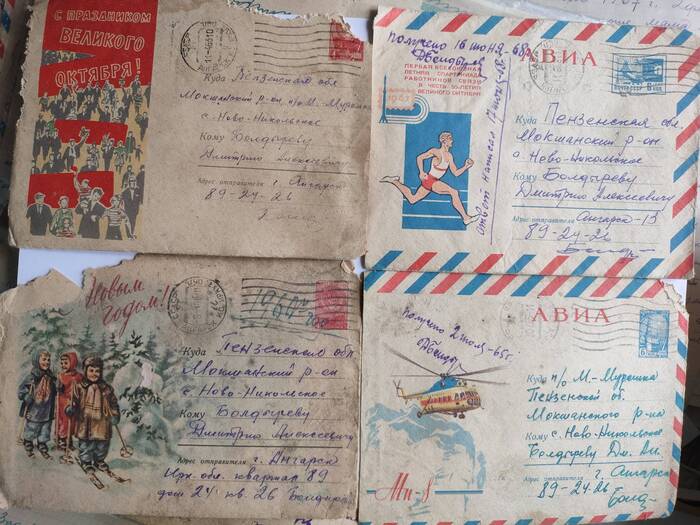 С ПРАЗДНИКОМ
ВЕЛИКОГО
ОКТЯБРЯ!
Куда Пензенская обл
Мокшанский р-он п/о М.
с. Ново-Никольское
Кому Болдыреву
Дмитрию Алексеевичу
Адрес отправителя г. Ангарск
89-24-26
получено 16 июня-68г.
АВИА
ПЕРВАЯ ВСЕСОЮЗНАЯ
ЛЕТНЯЯ СПАРТАКИАДА
РАБОТНИКОВ СВЯЗИ
В ЧЕСТЬ 50-ЛЕТИЯ
ВЕЛИКОГО ОКТЯБРЯ
1967
ответ написал 17 июня-68г
Куда Пензенская обл.
Мокшанский р-он
с. Ново-Никольское
Кому Болдыреву
Дмитрию Алексеевичу
Адрес отправителя Ангарск-13
89-24-26
Новым
годом!
1964
Куда Пензенская обл
Мокшанский р-он
с. Ново-Никольское
Кому Болдыреву
Дмитрию Алексеевичу
Адрес отправителя г. Ангарск
Ирк. обл. квартал 89
дом 24 кв. 26
получено 2 июл-65г.
АВИА
Ми-8
Куда п/о М-Мурошка
Пензенской об.
Мокшанского р-на
Кому с. Ново-Никольское
Болдыреву Дм. Ал.
Адрес отправителя г. Ангарск
89-24-26